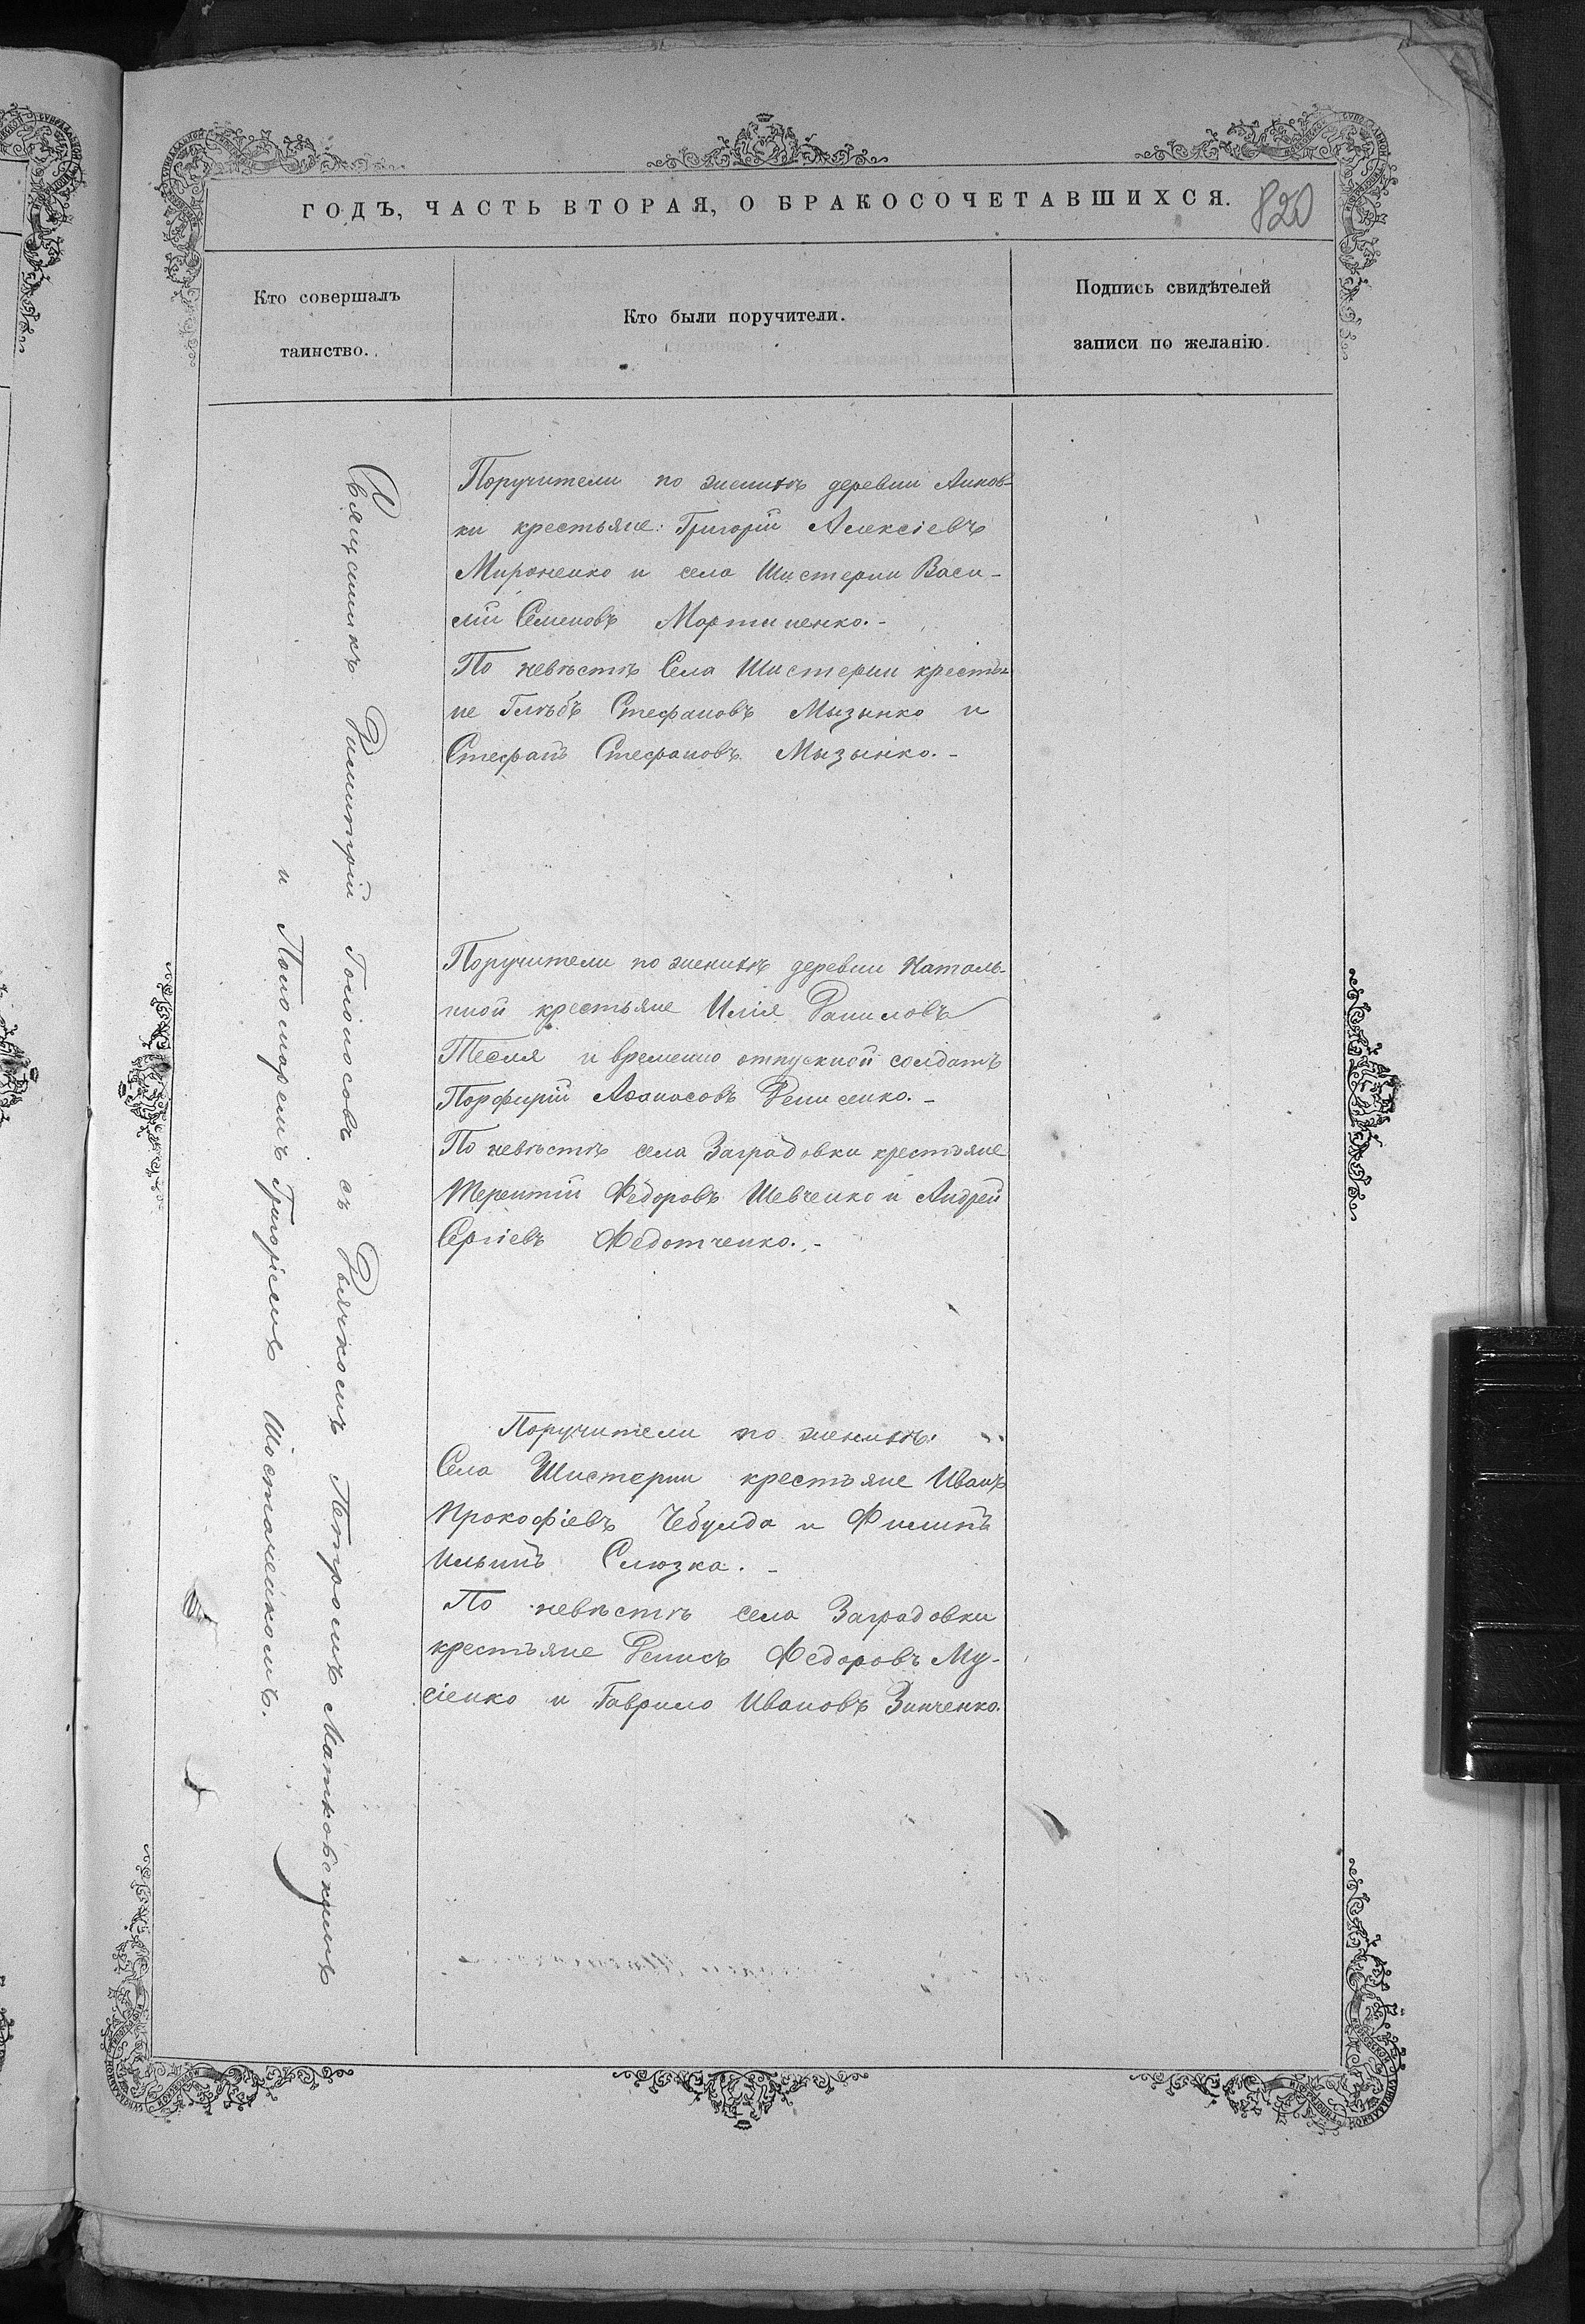 ГОДЪ, ЧАСТЬ ВТОРАЯ, О БРАКОСОЧЕТАВШИХСЯ.
820
Кто совершалъ
таинство.
Кто были поручители.
Подпись свидѣтелей
записи по желанію.
Священникъ Димитрій Голоносовъ съ Дьячкомъ Петромъ Матковскимъ
и Пономаремъ Григоріемъ Шостаченкомъ.
Поручители по женихѣ деревни Аннов-
ки крестьяне: Григорій Алексіевъ
Мироненко и села Шистерни Васи-
лій Семеновъ Мартиненко.-
По невѣстѣ Села Шистерни крестья-
не Глѣбъ Стефановъ Мызынко и
Стефанъ Стефановъ Мызынко.-
Поручители по женихѣ деревни Наталь-
иной крестьяне Илія Даниловъ
Тесля и временно отпускной солдатъ
Порфирій Аѳанасовъ Денисенко.-
По невѣстѣ села Заградовки крестьяне
Терентій Ѳедоровъ Шевченко и Андрей
Сергіевъ Ѳедотченко.-
Поручители по женихѣ:
Села Шистерни крестьяне Иванъ
Прокофіевъ Чебулда и Филипъ
Ильинъ Слюзка.-
По невѣстѣ села Заградовки
крестьяне Денисъ Ѳедоровъ Му-
сіенко и Гаврило Ивановъ Зинченко.